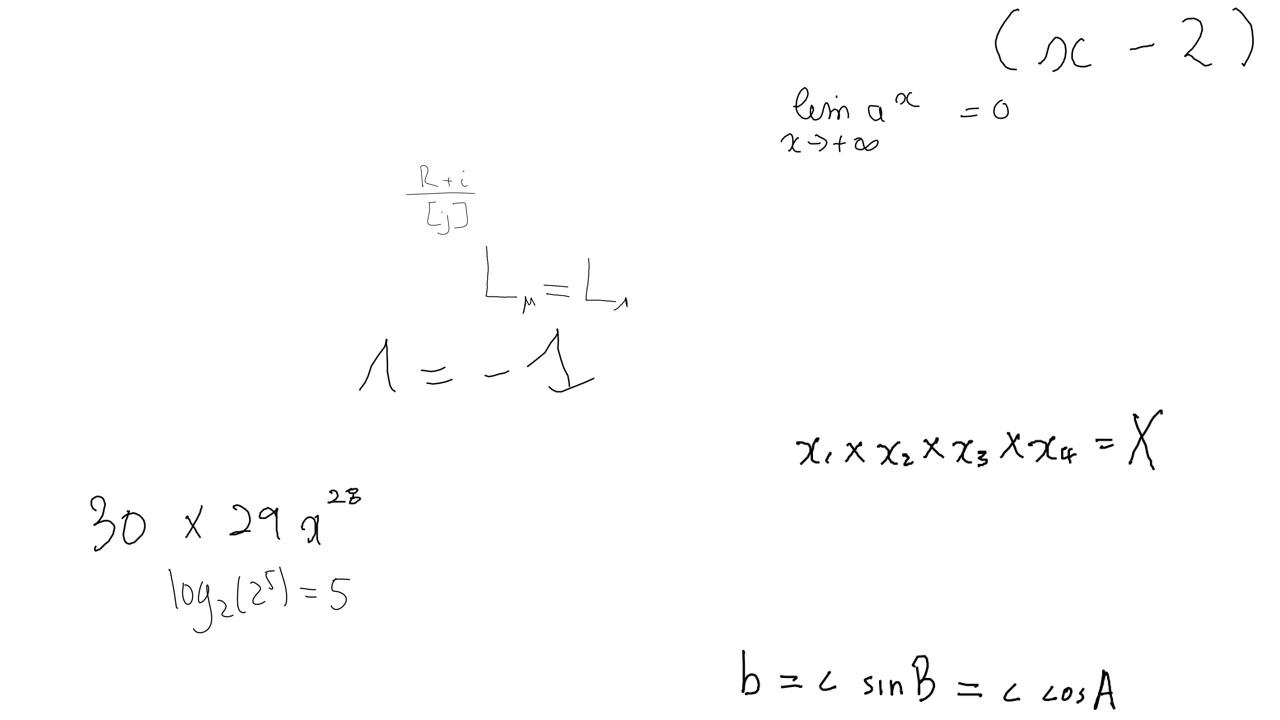 (x - 2)
lim a^x = 0
x → +∞
R + i
[j]
L_μ = L_1
1 = - 1
x_1 × x_2 × x_3 × x_4 = X
30 × 29 x^28
log_2(2^5) = 5
b = c sin B = c cos A